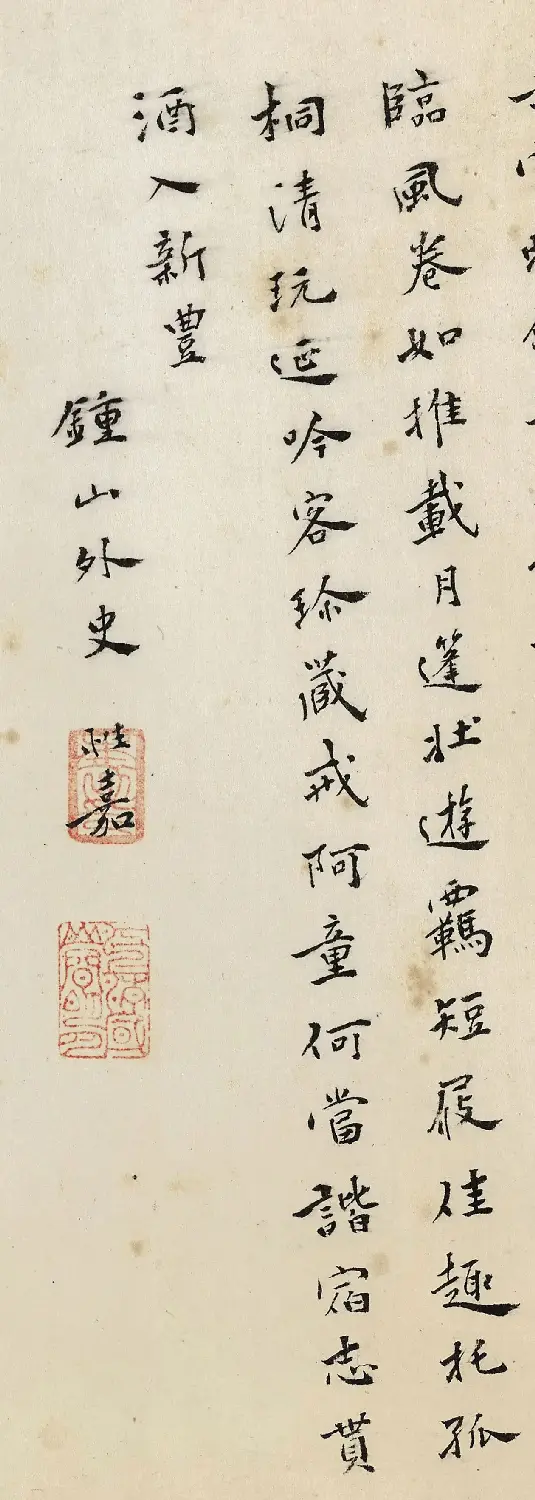 臨風卷如推載月篷壯遊羈短屐佳趣托孤
桐清玩延吟客珍藏戒阿童何當諧宿志貰
酒入新豐
鍾山外史 胜嘉